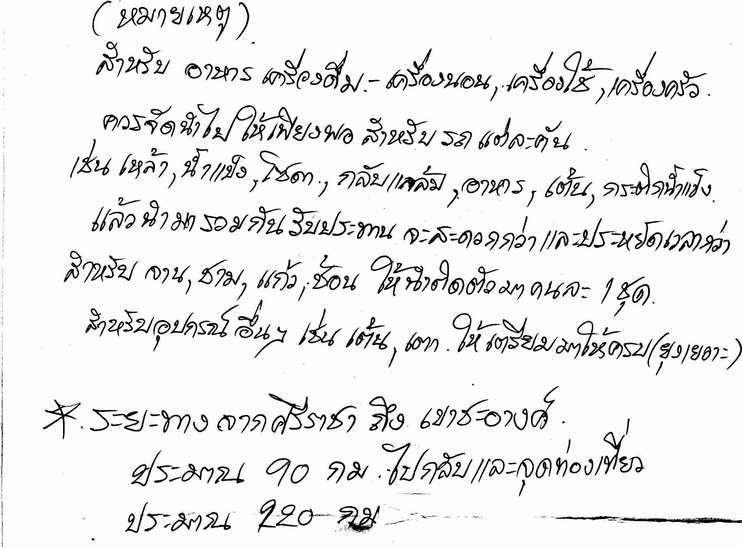 (หมายเหตุ)
สำหรับ อาหาร เครื่องดื่ม - เครื่องนอน, เครื่องใช้, เครื่องครัว.
ควรจัดนำไป ให้เพียงพอ สำหรับ รถ แต่ละคัน.
เช่น เหล้า, น้ำแข็ง, โซดา, กลับแกล้ม, อาหาร, เต้น, กระติกน้ำแข็ง.
แล้วนำมารวมกันรับประทาน จะสะดวกกว่า และประหยัดเวลากว่า
สำหรับ จาน, ชาม, แก้ว, ช้อน ให้นำติดตัวมาคนละ 1 ชุด.
สำหรับอุปกรณ์อื่นๆ เช่น เต้น, เตา. ให้เตรียมมาให้ครบ (ยุงเยอะ)
* ระยะทาง จากศรีราชา ถึง เขาชะอางค์.
ประมาณ 90 กม. ไปกลับและจุดท่องเที่ยว
ประมาณ 220 กม